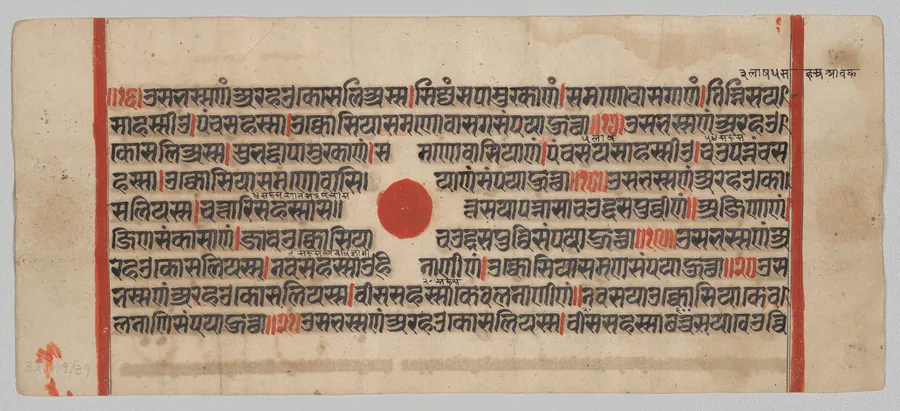 ३ लाष ५ स हस्र श्रावक
॥१६॥ उसभस्सणं अरहओ कोसलिअस्स। सिज्जंसपामुक्काणं। समणोवासगाणं। तिन्निसया
साहस्सीओ। पंचसहस्सा। उक्कोसिया समणोवासगसंपया हुत्था ॥१७॥ उसभस्सणं अरहओ
कोसलिअस्स। सुभद्दापामुक्काणं। स मणोवासियाणं। पंचसयसाहस्सीओ। चउपन्नंचस
हस्सा। उक्कोसिया समणोवासि। याणं संपया हुत्था ॥१८॥ उसभस्सणं अरहओ को।
सलियस्स। चत्तारिसहस्सा स॥ त्तसयापन्नासा चउद्दसपुव्वीणं॥ अजिणाणं।
जिणसंकासाणं। जाव उक्कोसिया चउद्दसपुव्विसंपया हुत्था ॥१९॥ उसभस्सणं अ
रहओ कोसलियस्स। नवसहस्सा ओहि नाणीणं। उक्कोसिया समणसंपया हुत्था ॥२०॥ उस
भस्सणं अरहओ कोसलियस्स। वीससहस्सा केवलनाणीणं॥ नवसया उक्कोसिया केव।
लनाणिसंपया हुत्था ॥२१॥ उसभस्सणं अरहओ कोसलियस्स। वीससहस्सा छच्चसया वेउव्वि